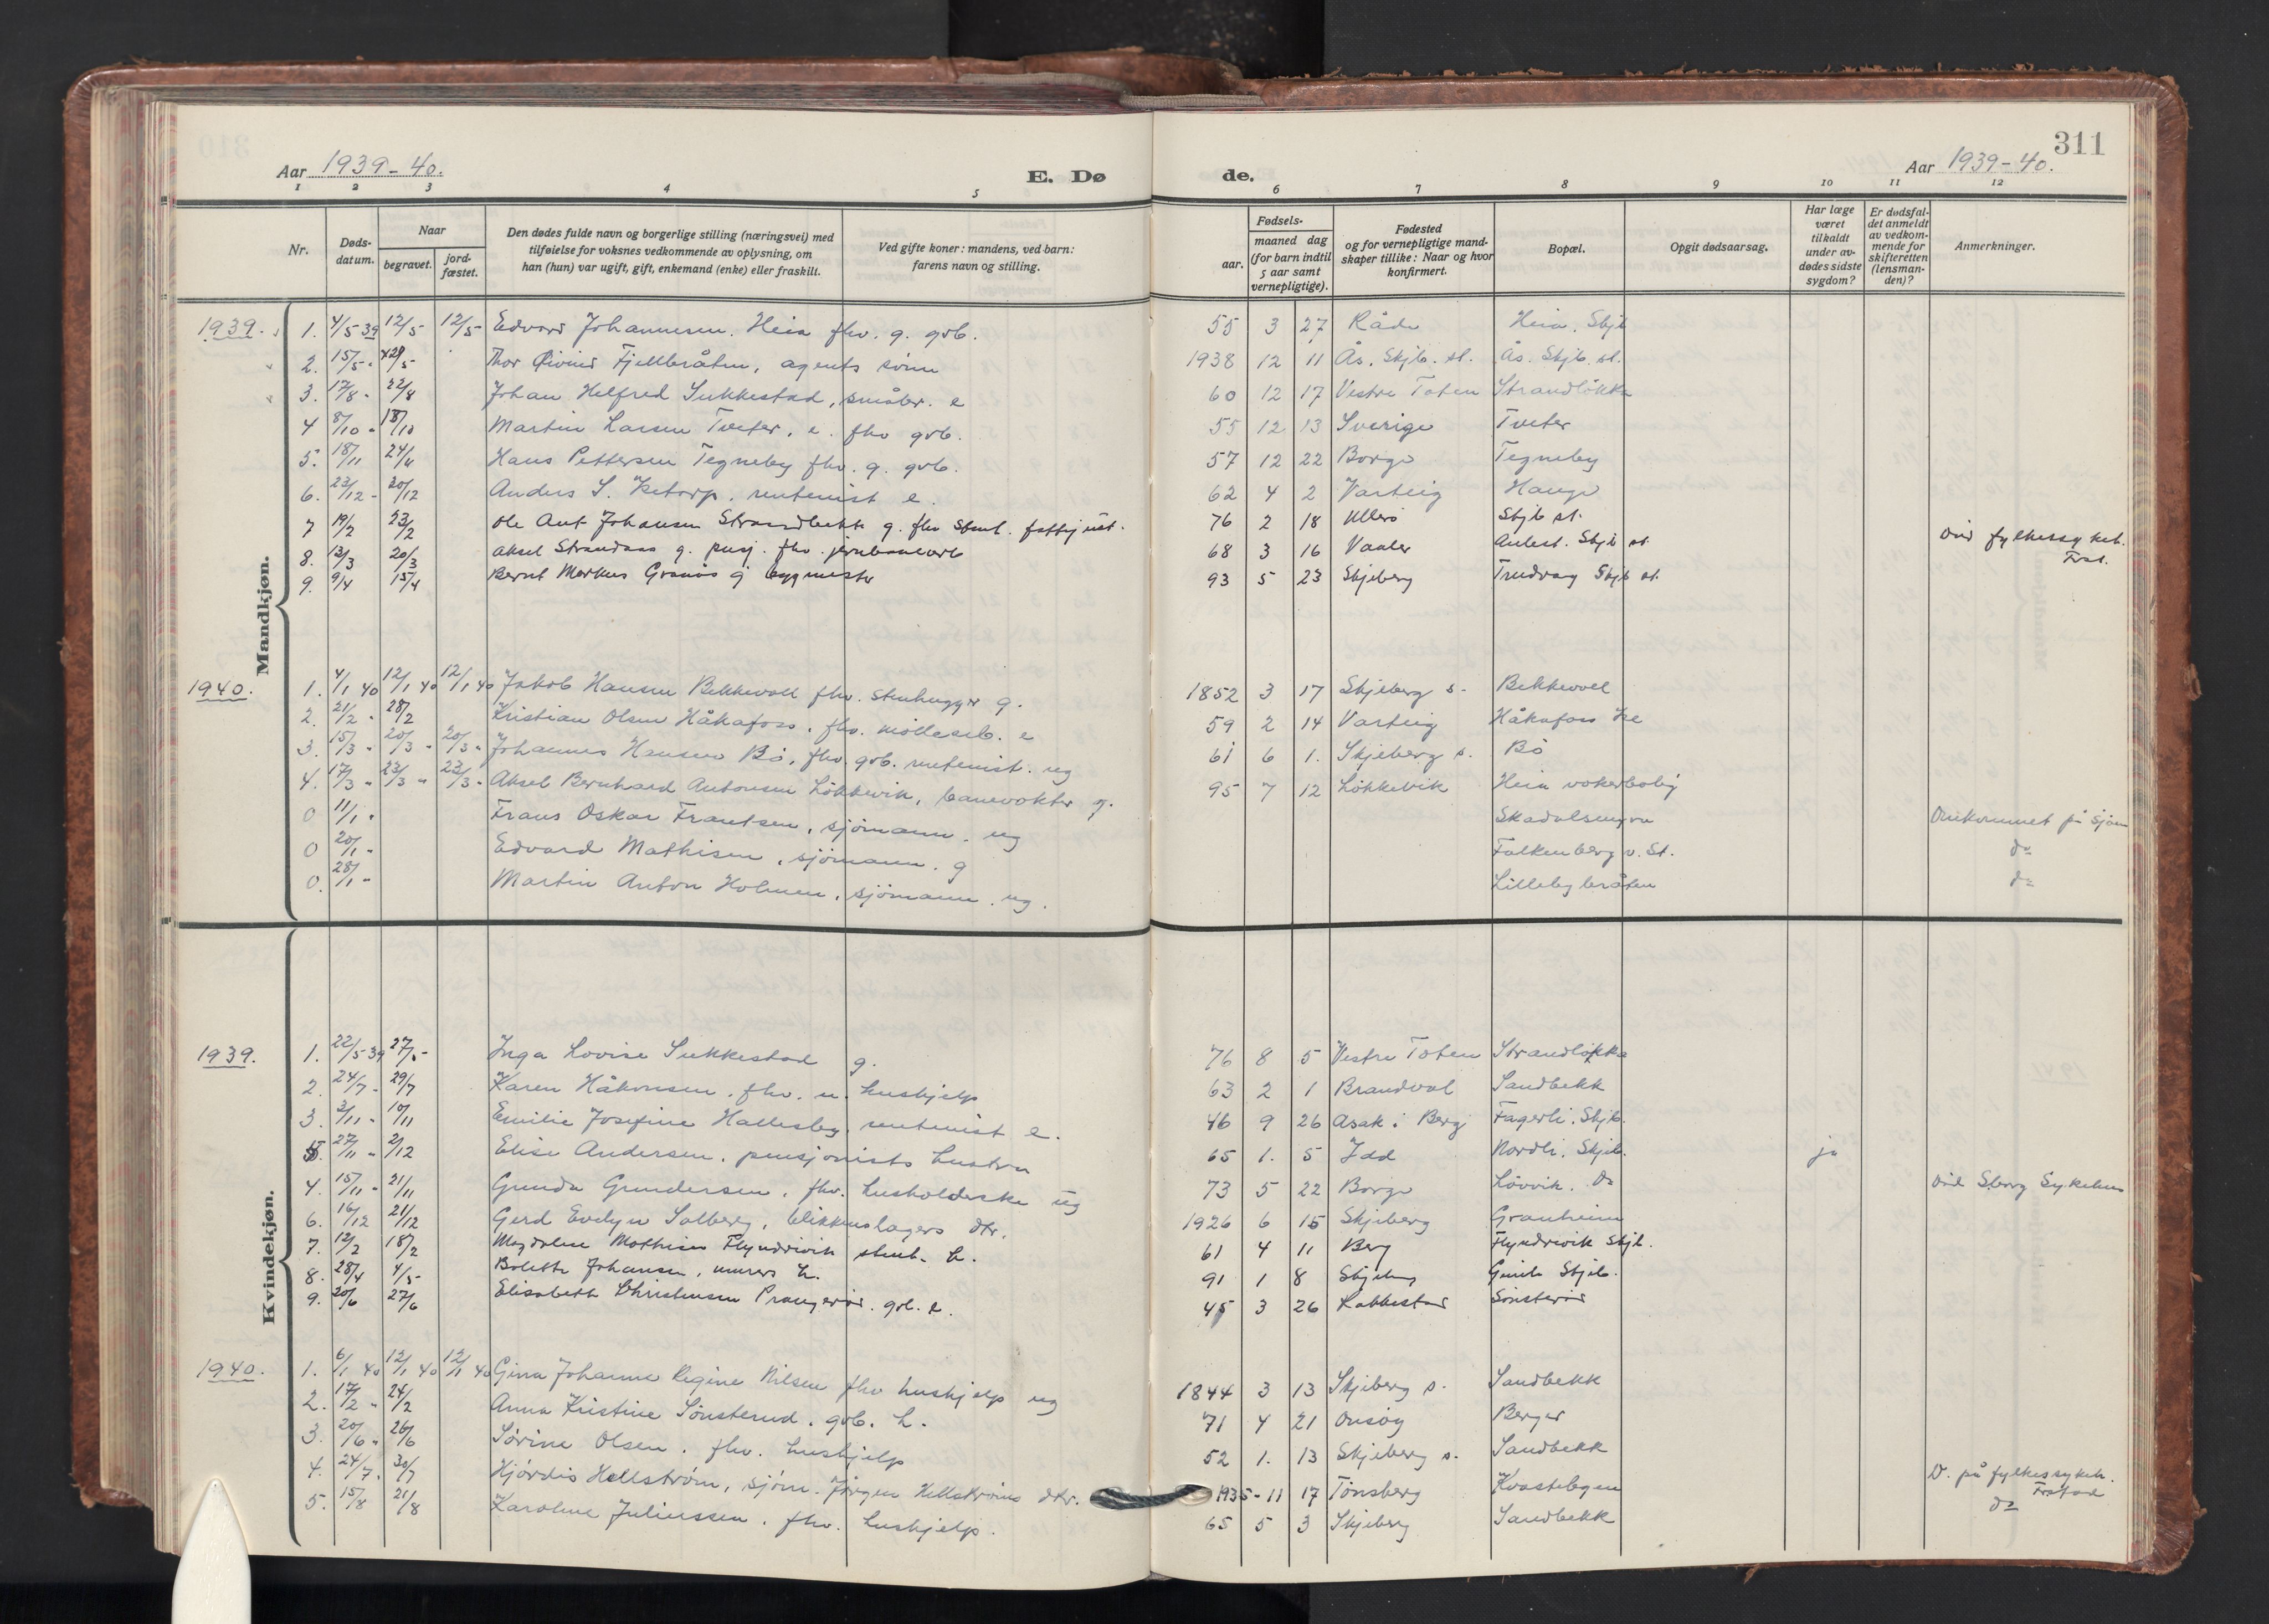 311
Aar 1939-40. E. Dø de. Aar 1939-40.
1 2 3 4 5 6 7 8 9 10 11 12
Nr. Døds-datum. Naar begravet. jord-fæstet. Den dødes fulde navn og borgerlige stilling (næringsvei) med tilføielse for voksnes vedkommende av oplysning, om han (hun) var ugift, gift, enkemand (enke) eller fraskilt. Ved gifte koner: mandens, ved barn: farens navn og stilling. Fødsels- aar. maaned dag (for barn indtil 5 aar samt vernepligtige). Fødested og for vernepligtige mand-skaper tillike: Naar og hvor konfirmert. Bopæl. Opgit dødsaarsag. Har læge været tilkaldt under av-dødes sidste sygdom? Er dødsfal-det anmeldt av vedkom-mende for skifteretten (lensman-den)? Anmerkninger.
Mandkjøn.
1939. 1. 4/5 39 12/5 12/5 Edvard Johannesen Heia fhv. g. grb. 55 3 27 Råde Heia. Skjb
2. 15/5 - 21/5 Thor Øivind Fjellbråten, agents sönn 1938 12 11 Ås. Skjb. st. Ås. Skjb. st.
3. 17/8 - 22/8 Johan Helfred Sukkestad, småbr. e 60 12 17 Vestre Toten Strandlökka
4 8/10 - 13/10 Martin Larsen Tveter, e. fhv grb. 55 12 13 Sverige Tveter
5. 18/11 24/11 Hans Pettersen Tegneby fhv. g. grb. 57 12 22 Borge Tegneby
6. 23/12 - 30/12 Anders S. Ketorp, rentenist e. 62 4 2 Varteig Hauge
7 19/2 23/2 Ole Ant. Johansen Strandbekk g. fhv stenh. 76 2 18 Ullerö Skjb st.
8. 13/3 20/3 Aksel Strandaas g. pensj. fhv. jernbanearb 68 3 16 Vaaler Skjb st. Död fylkessykeh. Frst.
9. 9/4 15/4 Bernt Markus Granås g byggmester 93 5 23 Skjeberg Trudvang Skjb st.
1940. 1. 4/1 40 12/1 40 12/1 40 Jakob Hansen Bekkevoll fhv. stenhugger g. 1852 3 17 Skjeberg s. Bekkevoll
2. 21/2 - 28/2 Kristian Olsen Håkafoss, fhv. möllearb. e 59 2 14 Varteig Håkafoss
3. 15/3 - 20/3 - 20/3 - Johannes Hansen Bö, fhv. grb. rentenist. ug 61 6 1. Skjeberg s. Bö
4. 17/3 - 23/3 - 23/3 - Aksel Bernhard Antonsen Lökkevik, banevokter g. 95 7 12 Lökkevik Heia vokterbolig
0 11/1 - Frans Oskar Frantsen, sjömann. ug Skadalsengen Omkommet på sjöen
0 20/1 - Edvard Mathisen, sjömann. g Falkenberg v. St. do
0. 28/1 - Martin Anton Holmen, sjömann. ug. Lillebybråten do
Kvindekjøn.
1939. 1. 22/5 39 27/5 - Inga Lovise Sukkestad g. 76 8 5 Vestre Toten Strandlökka
2. 24/7 - 29/7 Karen Håkonsen, fhv. u. hushjelp 63 2 1 Brandval Sandbekk
3. 3/11 - 10/11 Emilie Josefine Hallesby, rentenist e. 46 9 26 Asak i Berg Fagerli. Skjb.
5. 27/11 - 2/12 Elise Andersen, pensjonists hustru 65 1. 5 Idd Nordli. Skjb. ja
4. 15/11 - 21/11 Gunda Gundersen, fhv. husholderske ug 73 5 22 Borge Lövvik. do Död Sborg Sykehus
6. 16/12 21/12 Gerd Evelyn Solberg, blikkenslagers dtr. 1926 6 15 Skjeberg Granheim
7. 12/2 18/2 Magdalene Mathisen Flyndrevik stenh. h. 61 4 11 Berg Flyndrevik Skjb.
8. 28/4 4/5 - Bolette Johansen, murers h. 91 1 8 Skjeberg Skjb.
9. 20/6 27/6 Elisabeth Christensen Prangeröd. grb. e. 45 3 26 Sönsteröd
1940. 1. 6/1 40 12/1 40 12/1 40 Gina Johanne Regine Nilsen fhv hushjelp ug 1844 3 13 Skjeberg s. Sandbekk
2. 17/2 - 24/2 Anna Kristine Sönsterud, grb. h. 71 4 21 Onsöy Berger
3. 20/6 - 26/6 Sörine Olsen. fhv. hushjelp 52 1. 13 Skjeberg s. Sandbekk
4. 24/7. 30/7 Hjördis Hellström, sjöm. Jörgen Hellströms dtr. 1935 - 11 17 Tönsberg Kvastebyen D. på fylkessykeh. Frstad
5. 15/8 21/8 Karoline Juliussen, fhv. hushjelp. 65 5 3 Skjeberg Sandbekk do